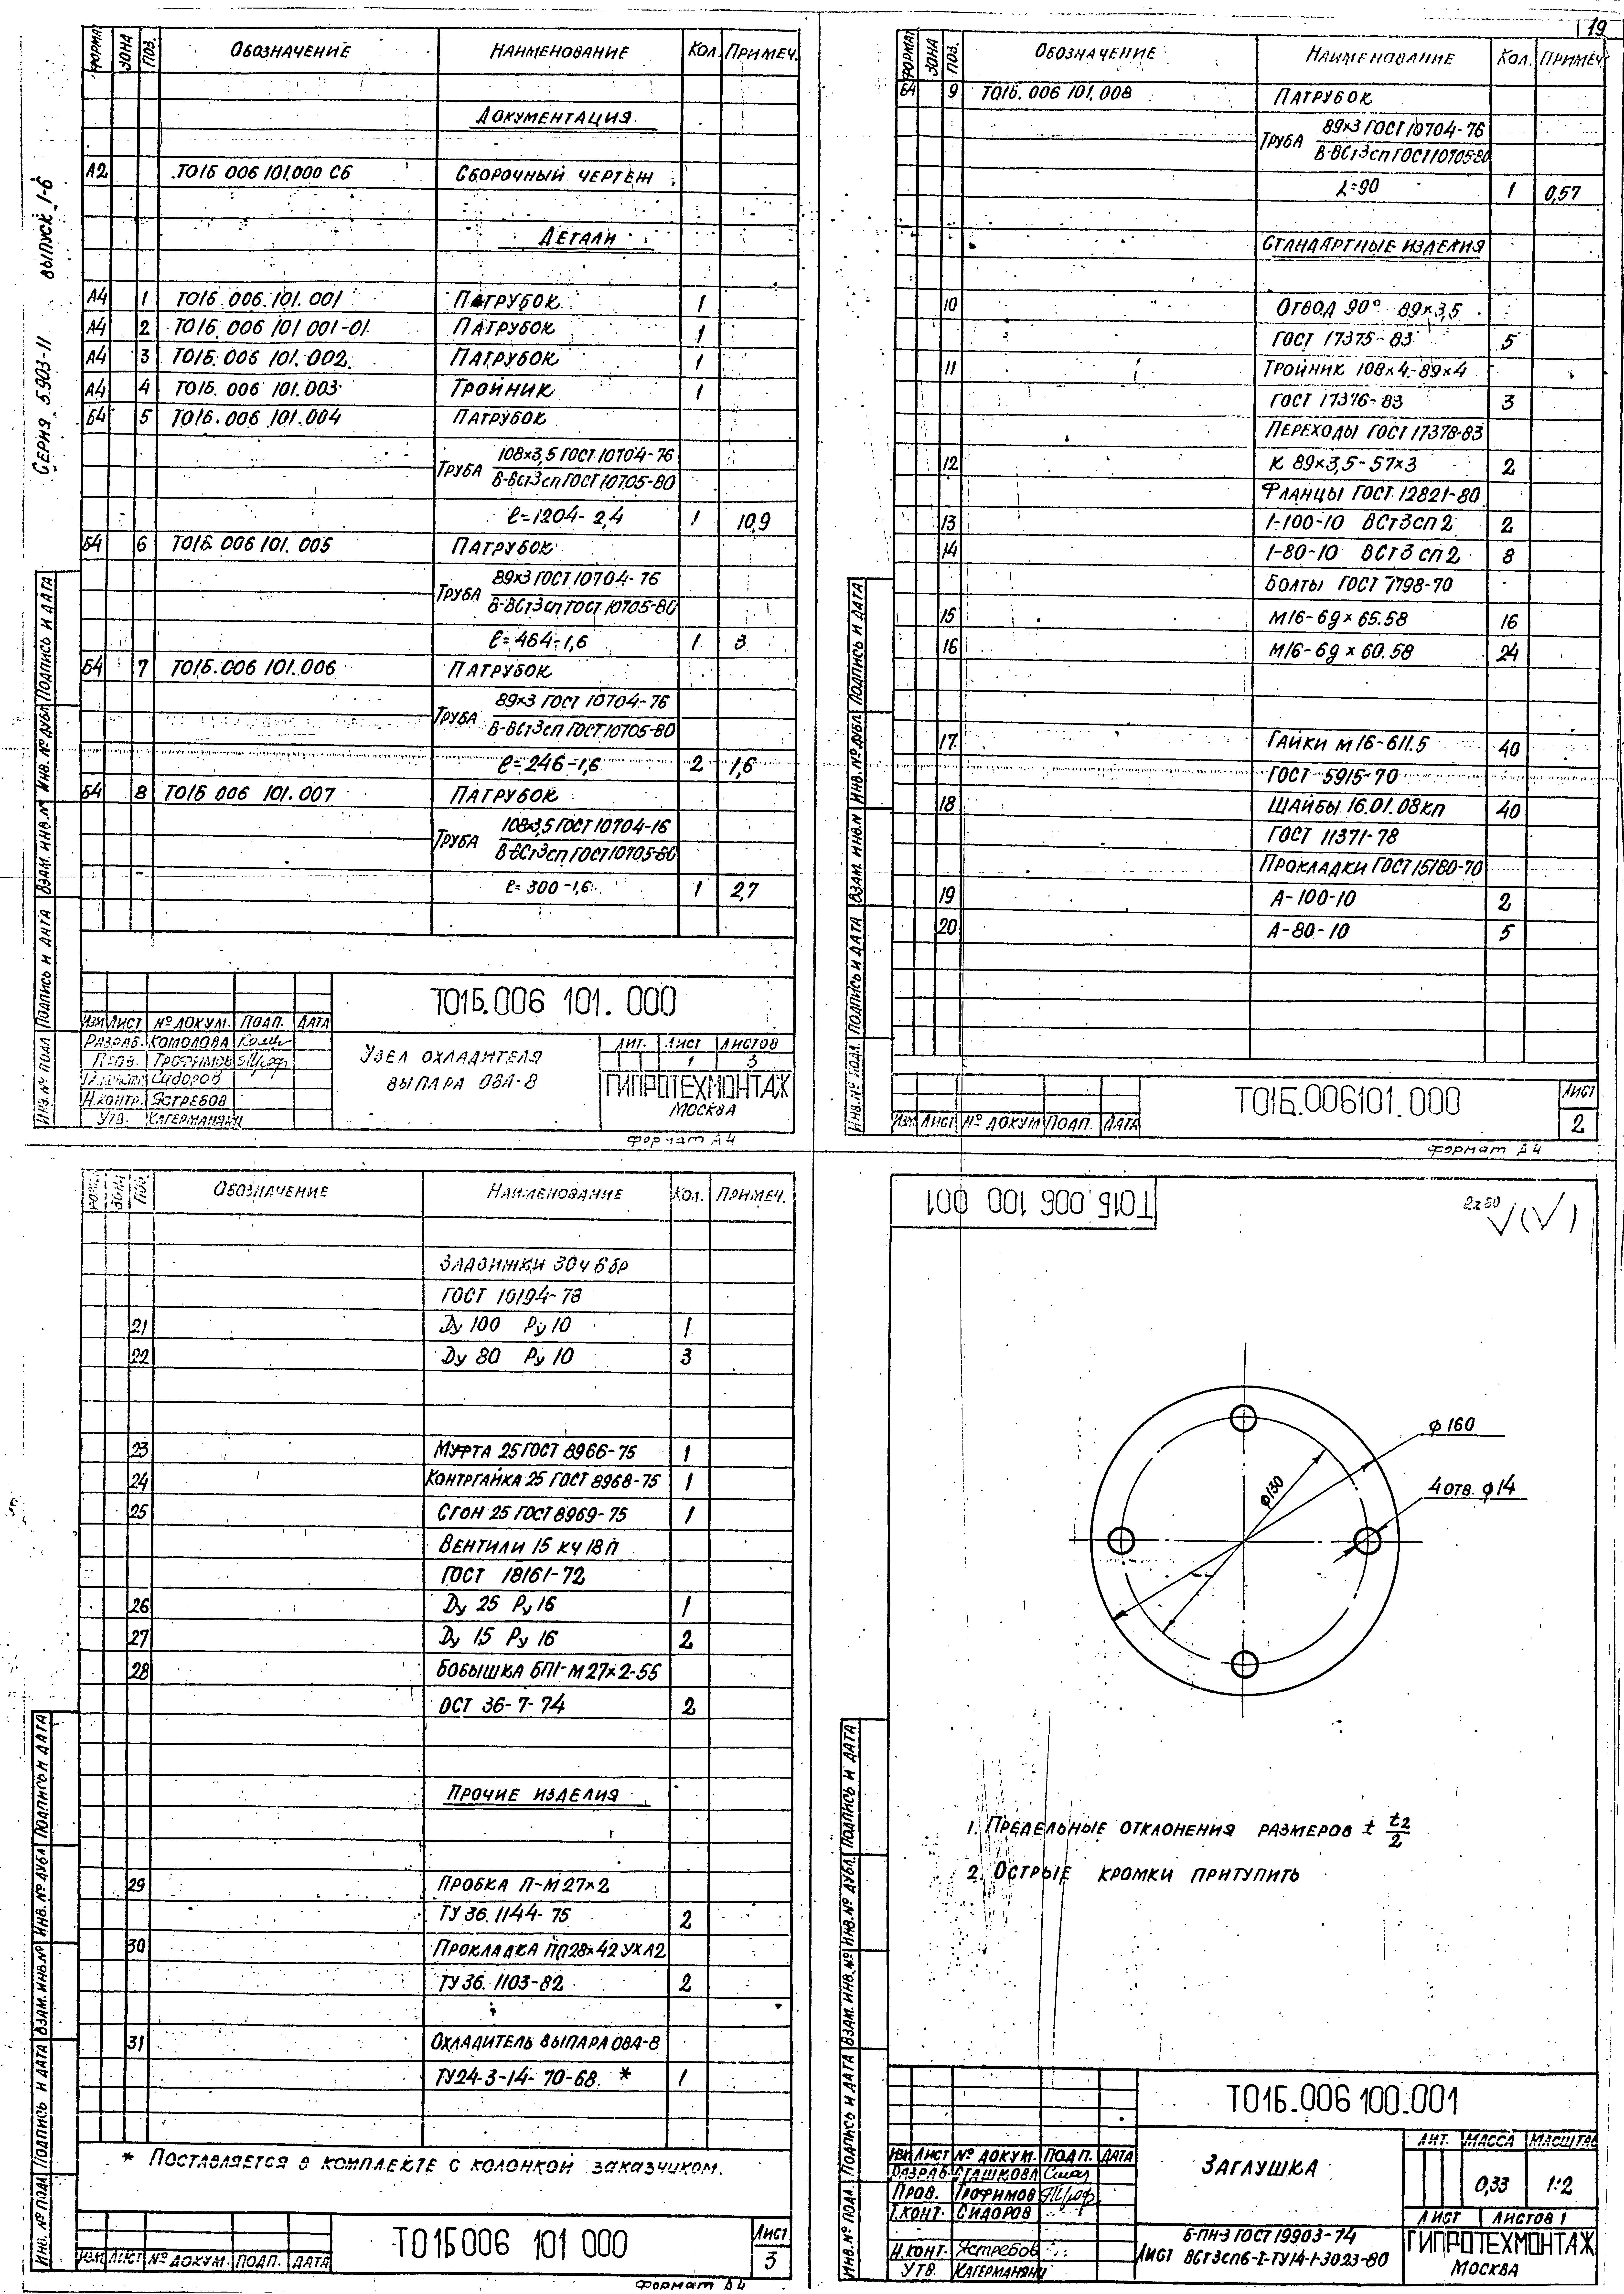 19
Серия 5.903-11 выпуск 1-6
ФОРМАТ ЗОНА ПОЗ. ОБОЗНАЧЕНИЕ НАИМЕНОВАНИЕ КОЛ. ПРИМЕЧ.
ДОКУМЕНТАЦИЯ
А2 Т01Б 006 101.000 СБ СБОРОЧНЫЙ ЧЕРТЕЖ
ДЕТАЛИ
А4 1 Т01Б.006.101.001 ПАТРУБОК 1
А4 2 Т01Б.006 101 001-01 ПАТРУБОК 1
А4 3 Т01Б.006 101.002 ПАТРУБОК 1
А4 4 Т01Б.006 101.003 ТРОЙНИК 1
Б4 5 Т01Б.006 101.004 ПАТРУБОК
ТРУБА 108×3,5 ГОСТ 10704-76
В-ВСт3сп ГОСТ 10705-80
ℓ=1204-2,4 1 10,9
Б4 6 Т01Б 006 101.005 ПАТРУБОК
ТРУБА 89×3 ГОСТ 10704-76
В-ВСт3сп ГОСТ 10705-80
ℓ=464-1,6 1 3
Б4 7 Т01Б.006 101.006 ПАТРУБОК
ТРУБА 89×3 ГОСТ 10704-76
В-ВСт3сп ГОСТ 10705-80
ℓ=246-1,6 2 1,6
Б4 8 Т01Б 006 101.007 ПАТРУБОК
ТРУБА 108×3,5 ГОСТ 10704-16
В-ВСт3сп ГОСТ 10705-80
ℓ=300-1,6 1 2,7
Т01Б.006 101.000
ИЗМ ЛИСТ № ДОКУМ. ПОДП. ДАТА
РАЗРАБ. КОМОЛОВА
ПРОВ. ТРОФИМОВ
СИДОРОВ
Н.КОНТР. ЯСТРЕБОВ
УТВ. КАГЕРМАНЯНЦ
УЗЕЛ ОХЛАДИТЕЛЯ
ВЫПАРА ОВА-8
ЛИТ. ЛИСТ ЛИСТОВ
1 3
ГИПРОТЕХМОНТАЖ
МОСКВА
Формат А4
ИНВ.№ ПОДЛ ПОДПИСЬ И ДАТА ВЗАМ. ИНВ.№ ИНВ.№ ДУБЛ ПОДПИСЬ И ДАТА
ФОРМАТ ЗОНА ПОЗ. ОБОЗНАЧЕНИЕ НАИМЕНОВАНИЕ КОЛ. ПРИМЕЧ.
Б4 9 Т01Б.006 101.008 ПАТРУБОК
ТРУБА 89×3 ГОСТ 10704-76
В-ВСт3сп ГОСТ 10705-80
L=90 1 0,57
СТАНДАРТНЫЕ ИЗДЕЛИЯ
10 ОТВОД 90° 89×3,5
ГОСТ 17375-83 5
11 ТРОЙНИК 108×4-89×4
ГОСТ 17376-83 3
ПЕРЕХОДЫ ГОСТ 17378-83
12 К 89×3,5-57×3 2
ФЛАНЦЫ ГОСТ 12821-80
13 1-100-10 ВСт3сп2 2
14 1-80-10 ВСт3сп2 8
БОЛТЫ ГОСТ 7798-70
15 М16-6g×65.58 16
16 М16-6g×60.58 24
17 ГАЙКИ М16-6Н.5 40
ГОСТ 5915-70
18 ШАЙБЫ 16.01.08кп 40
ГОСТ 11371-78
ПРОКЛАДКИ ГОСТ 15180-70
19 А-100-10 2
20 А-80-10 5
ИЗМ ЛИСТ № ДОКУМ ПОДП. ДАТА
Т01Б.006101.000
ЛИСТ
2
Формат А4
ИНВ.№ ПОДЛ. ПОДПИСЬ И ДАТА ВЗАМ ИНВ.№ ИНВ.№ ДУБЛ. ПОДПИСЬ И ДАТА
ОБОЗНАЧЕНИЕ НАИМЕНОВАНИЕ КОЛ. ПРИМЕЧ.
ЗАДВИЖКИ 30ч6бр
ГОСТ 10194-78
21 Ду 100 Ру 10 1
22 Ду 80 Ру 10 3
23 МУФТА 25 ГОСТ 8966-75 1
24 КОНТРГАЙКА 25 ГОСТ 8968-75 1
25 СГОН 25 ГОСТ 8969-75 1
ВЕНТИЛИ 15 кч 18п
ГОСТ 18161-72
26 Ду 25 Ру 16 1
27 Ду 15 Ру 16 2
28 БОБЫШКА БП1-М27×2-55
ОСТ 36-7-74 2
ПРОЧИЕ ИЗДЕЛИЯ
29 ПРОБКА П-М27×2
ТУ 36.1144-75 2
30 ПРОКЛАДКА ПП28×42 УХЛ2
ТУ 36.1103-82 2
31 ОХЛАДИТЕЛЬ ВЫПАРА ОВА-8
ТУ24-3-14-70-68 * 1
* ПОСТАВЛЯЕТСЯ В КОМПЛЕКТЕ С КОЛОНКОЙ ЗАКАЗЧИКОМ.
ИЗМ ЛИСТ № ДОКУМ. ПОДП. ДАТА
Т01Б006 101 000
ЛИСТ
3
Формат А4
ИНВ.№ ПОДЛ ПОДПИСЬ И ДАТА ВЗАМ. ИНВ.№ ИНВ.№ ДУБЛ ПОДПИСЬ И ДАТА
Т01Б.006 100 001
√(√)
ϕ160
ϕ130
4 отв. ϕ14
1. ПРЕДЕЛЬНЫЕ ОТКЛОНЕНИЯ РАЗМЕРОВ ± t2/2
2. ОСТРЫЕ КРОМКИ ПРИТУПИТЬ
Т01Б.006 100.001
ИЗМ ЛИСТ № ДОКУМ. ПОДП. ДАТА
РАЗРАБ. СТАШКОВА
ПРОВ. ТРОФИМОВ
Т.КОНТ. СИДОРОВ
Н.КОНТ. ЯСТРЕБОВ
УТВ. КАГЕРМАНЯНЦ
ЗАГЛУШКА
ЛИТ. МАССА МАСШТАБ
0,33 1:2
ЛИСТ ЛИСТОВ 1
ЛИСТ Б-ПН-3 ГОСТ 19903-74
ВСт3сп6-I-ТУ14-1-3023-80
ГИПРОТЕХМОНТАЖ
МОСКВА
ИНВ.№ ПОДЛ. ПОДПИСЬ И ДАТА ВЗАМ. ИНВ.№ ИНВ.№ ДУБЛ. ПОДПИСЬ И ДАТА